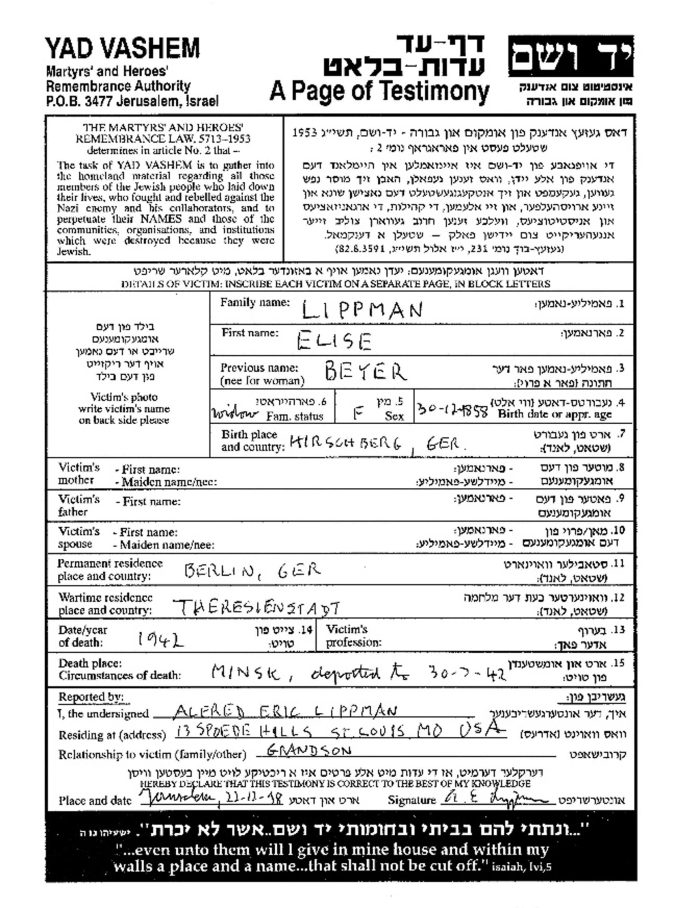 YAD VASHEM
Martyrs' and Heroes'
Remembrance Authority
P.O.B. 3477 Jerusalem, Israel
דף-עד
עדות-בלאט
A Page of Testimony
יד ושם
אינסטיטוט צום אנדענק
פון אומקום און גבורה
THE MARTYRS' AND HEROES'
REMEMBRANCE LAW, 5713-1953
determines in article No. 2 that –
The task of YAD VASHEM is to gather into
the homeland material regarding all those
members of the Jewish people who laid down
their lives, who fought and rebelled against the
Nazi enemy and his collaborators, and to
perpetuate their NAMES and those of the
communities, organisations, and institutions
which were destroyed because they were
Jewish.
דאס געזעץ אנדענק פון אומקום און גבורה - יד-ושם, תשי"ג 1953
שטעלט פעסט אין פאראגראף נומי 2 :
די אויפגאבע פון יד-ושם איז איינזאמלען אין היימלאנד דעם
אנדענק פון אלע יידן, וואס זענען געפאלן, האבן זיך מוסר נפש
געווען, געקעמפט און זיך אנטקעגנגעשטעלט דעם נאצישן שונא און
זיינע ארויסהעלפער, און זיי אלעמען, די קהילות, די ארגאניזאציעס
און אינסטיטוציעס, וועלכע זענען חרוב געווארן צוליב זייער
אנגעהעריקייט צום יידישן פאלק – שטעלן א דענקמאל.
(געזעץ-בוך נומי 132, י"ז אלול תשי"ג, 82.8.3591)
דאטען וועגן אומגעקומענעם: יעדן נאמען אויף א באזונדער בלאט, מיט קלארער שריפט
DETAILS OF VICTIM: INSCRIBE EACH VICTIM ON A SEPARATE PAGE, IN BLOCK LETTERS
בילד פון דעם
אומגעקומענעם
שרייבט או דעם נאמען
אויף דער ריקזייט
פון דעם בילד
Victim's photo
write victim's name
on back side please
Family name: LIPPMAN 1. פאמיליע-נאמען:
First name: ELISE 2. פארנאמען:
Previous name: BEYER 3. פאמיליע-נאמען פאר דער
(nee for woman) חתונה (פאר א פרוי):
widow 6. פארהייראט: Fam. status F 5. מין Sex 30-12-1858 4. געבורטס-דאטע (ווי אלט) Birth date or appr. age
Birth place and country: HIRSCHBERG, GER. 7. ארט פון געבורט (שטאט, לאנד):
Victim's mother - First name: - פארנאמען: 8. מוטער פון דעם
- Maiden name/nee: - מיידלשע-פאמיליע: אומגעקומענעם
Victim's father - First name: - פארנאמען: 9. פאטער פון דעם אומגעקומענעם
Victim's spouse - First name: - פארנאמען: 10. מאן/פרוי פון
- Maiden name/nee: - מיידלשע-פאמיליע: דעם אומגעקומענעם
Permanent residence place and country: BERLIN, GER 11. סטאבילער וואוינארט (שטאט, לאנד):
Wartime residence place and country: THERESIENSTADT 12. וואוינערטער בעת דער מלחמה (שטאט, לאנד):
Date/year of death: 1942 14. צייט פון טויט: Victim's profession: 13. בערוף אדער פאך:
Death place: Circumstances of death: MINSK, deported to 30-7-42 15. ארט און אומשטענדן פון טויט:
Reported by: געשריבן פון:
I, the undersigned ALFRED ERIC LIPPMAN איך, דער אונטערגעשריבענער
Residing at (address) 13 SPOEDE HILLS ST. LOUIS MO USA וואס וואוינט (אדרעס)
Relationship to victim (family/other) GRANDSON קרובישאפט
דערקלער דערמיט, אז די עדות מיט אלע פרטים איז א ריכטיקע לויט מיין בעסטען וויסן
HEREBY DECLARE THAT THIS TESTIMONY IS CORRECT TO THE BEST OF MY KNOWLEDGE
Place and date Jerusalem, 22-12-98 ארט און דאטע Signature A. E. Lippman אונטערשריפט
"...ונתתי להם בביתי ובחומותי יד ושם..אשר לא יכרת". ישעיהו נו ה
"...even unto them will I give in mine house and within my
walls a place and a name...that shall not be cut off." isaiah, lvi,5